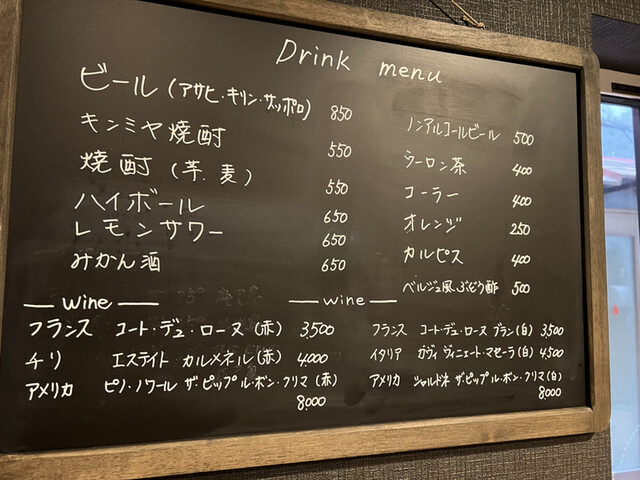 Drink menu
ビール（アサヒ・キリン・サッポロ） 850
キンミヤ焼酎 550
焼酎（芋、麦） 550
ハイボール 650
レモンサワー 650
みかん酒 650
ノンアルコールビール 500
ウーロン茶 400
コーラー 400
オレンジ 250
カルピス 400
ベルジュ風、ぶどう酢 500
wine
フランス コート・デュ・ローヌ（赤） 3,500
チリ エステイト カルメネル（赤） 4,000
アメリカ ピノ・ノワール ザ・ピップル・ボン・クリマ（赤）
8,000
wine
フランス コート・デュ・ローヌ ブラン（白） 3,500
イタリア ガヴィ ヴィニェート・マセーラ（白） 4,500
アメリカ シャルドネ ザ・ピップル・ボン・クリマ（白）
8,000